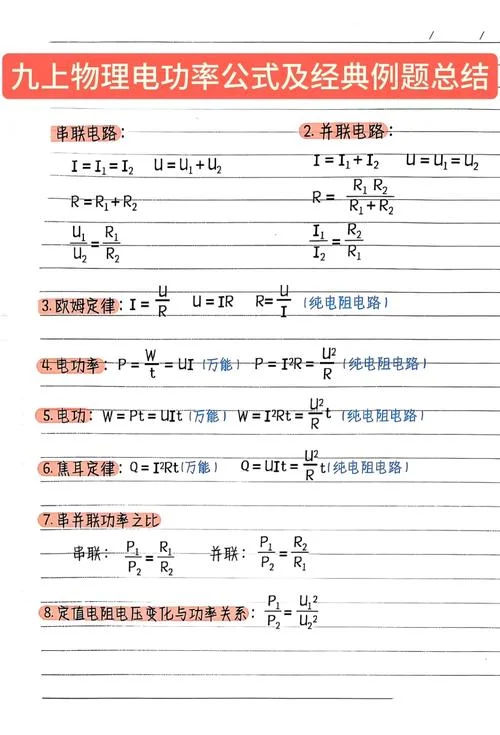 / /
九上物理电功率公式及经典例题总结
串联电路:
I=I₁=I₂ U=U₁+U₂
R=R₁+R₂
U₁/U₂=R₁/R₂
2.并联电路:
I=I₁+I₂ U=U₁=U₂
R=R₁R₂/R₁+R₂
I₁/I₂=R₂/R₁
3.欧姆定律:I=U/R U=IR R=U/I(纯电阻电路)
4.电功率:P=W/t=UI(万能) P=I²R=U²/R(纯电阻电路)
5.电功:W=Pt=UIt(万能) W=I²Rt=U²/Rt(纯电阻电路)
6.焦耳定律:Q=I²Rt(万能) Q=UIt=U²/Rt(纯电阻电路)
7.串并联功率之比
串联:P₁/P₂=R₁/R₂ 并联:P₁/P₂=R₂/R₁
8.定值电阻电压变化与功率关系:P₁/P₂=U₁²/U₂²